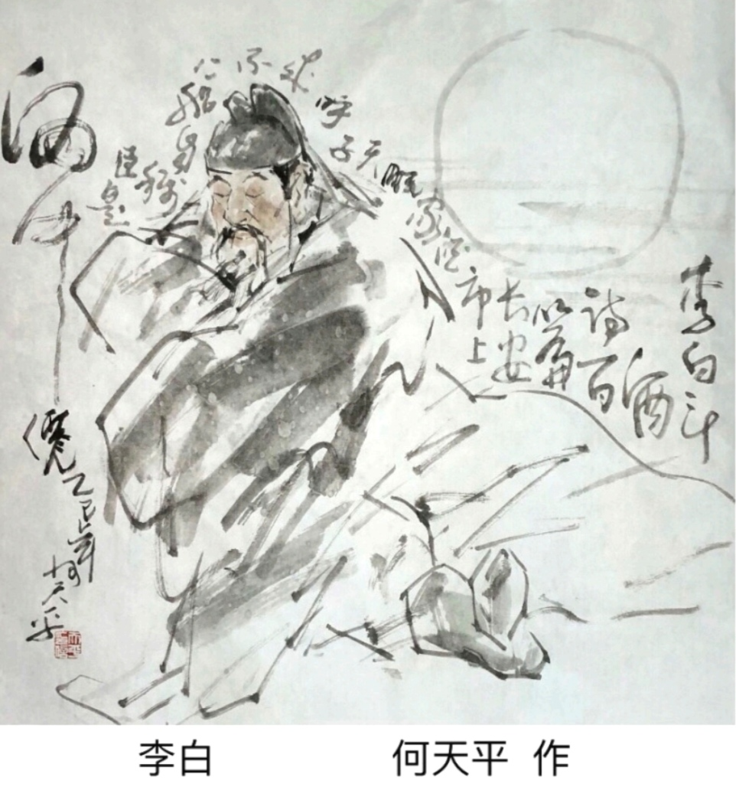 李白斗
酒
詩百
篇
长安
市上
酒家眠
天子呼来不上船
自称
臣是
酒中僊
乙巳年
何天平
李白 何天平 作